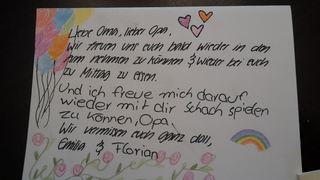 Liebe Oma, lieber Opa,
Wir freuen uns euch bald wieder in den
Arm nehmen zu können & wieder bei euch
zu Mittag zu essen.
Und ich freue mich darauf
wieder mit dir Schach spielen
zu können, Opa.
Wir vermissen euch ganz doll,
Emilia & Florian